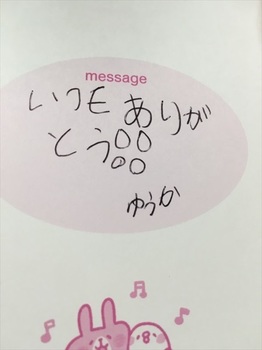 message
いつもありが
とう○○
○○
ゆうか